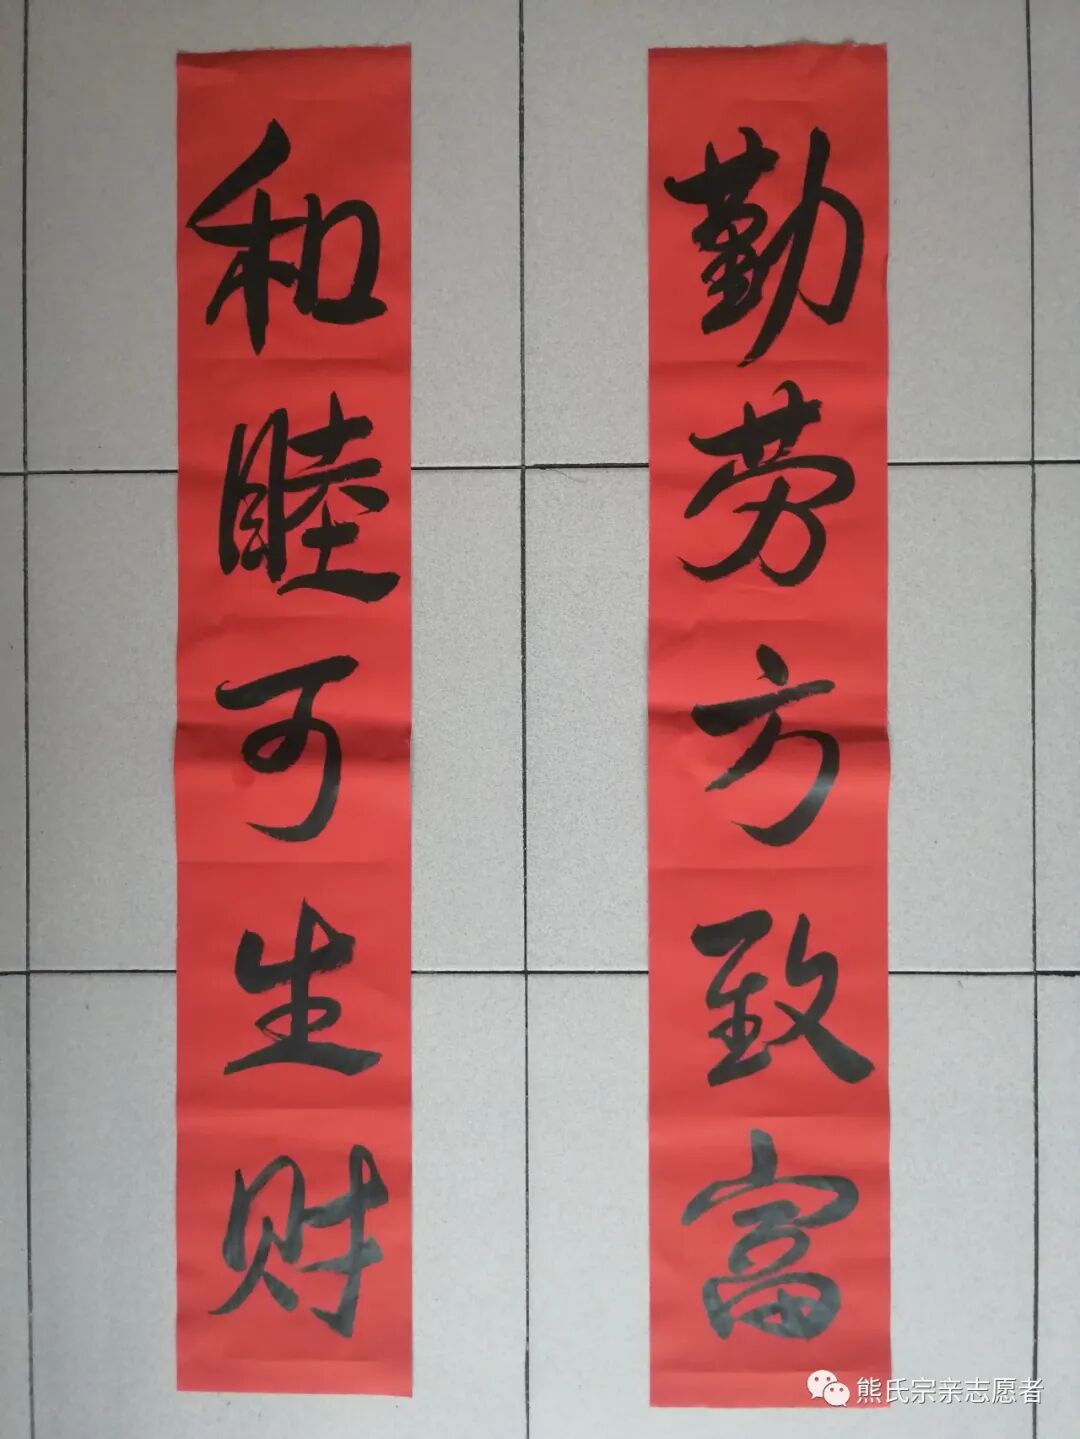 勤劳方致富
和睦可生财
熊氏宗亲志愿者